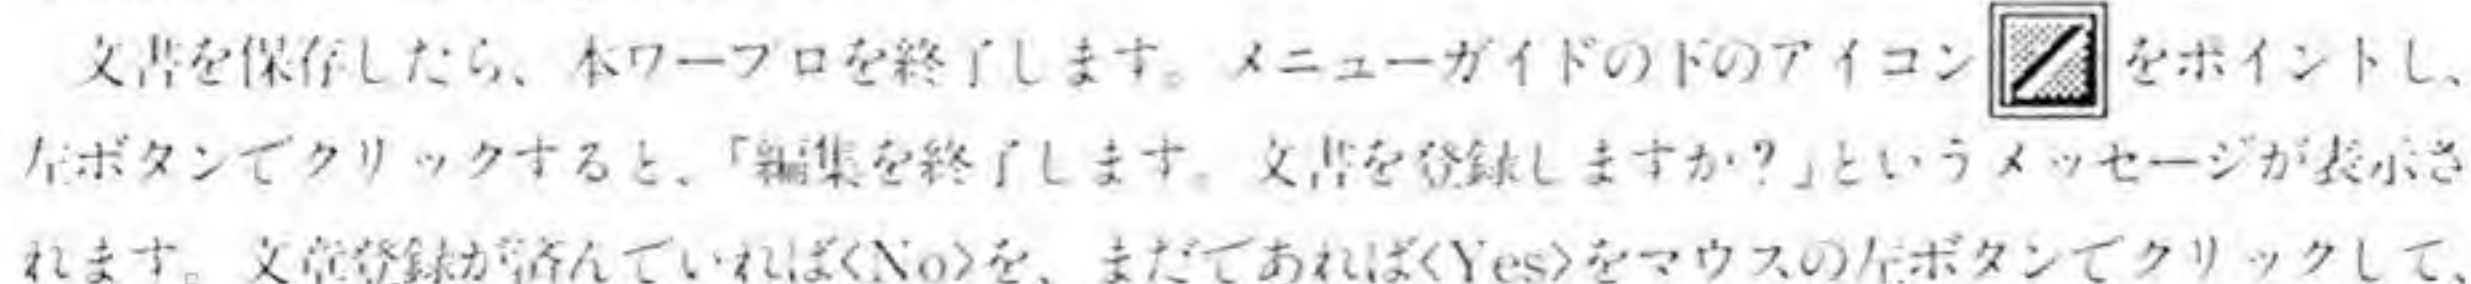 文書を保存したら、本ワープロを終了します。メニューガイドの下のアイコンをポイントし、
左ボタンでクリックすると、「編集を終了します。文書を登録しますか?」というメッセージが表示さ
れます。文章登録が済んでいれば<No>を、まだであれば<Yes>をマウスの左ボタンでクリックして、